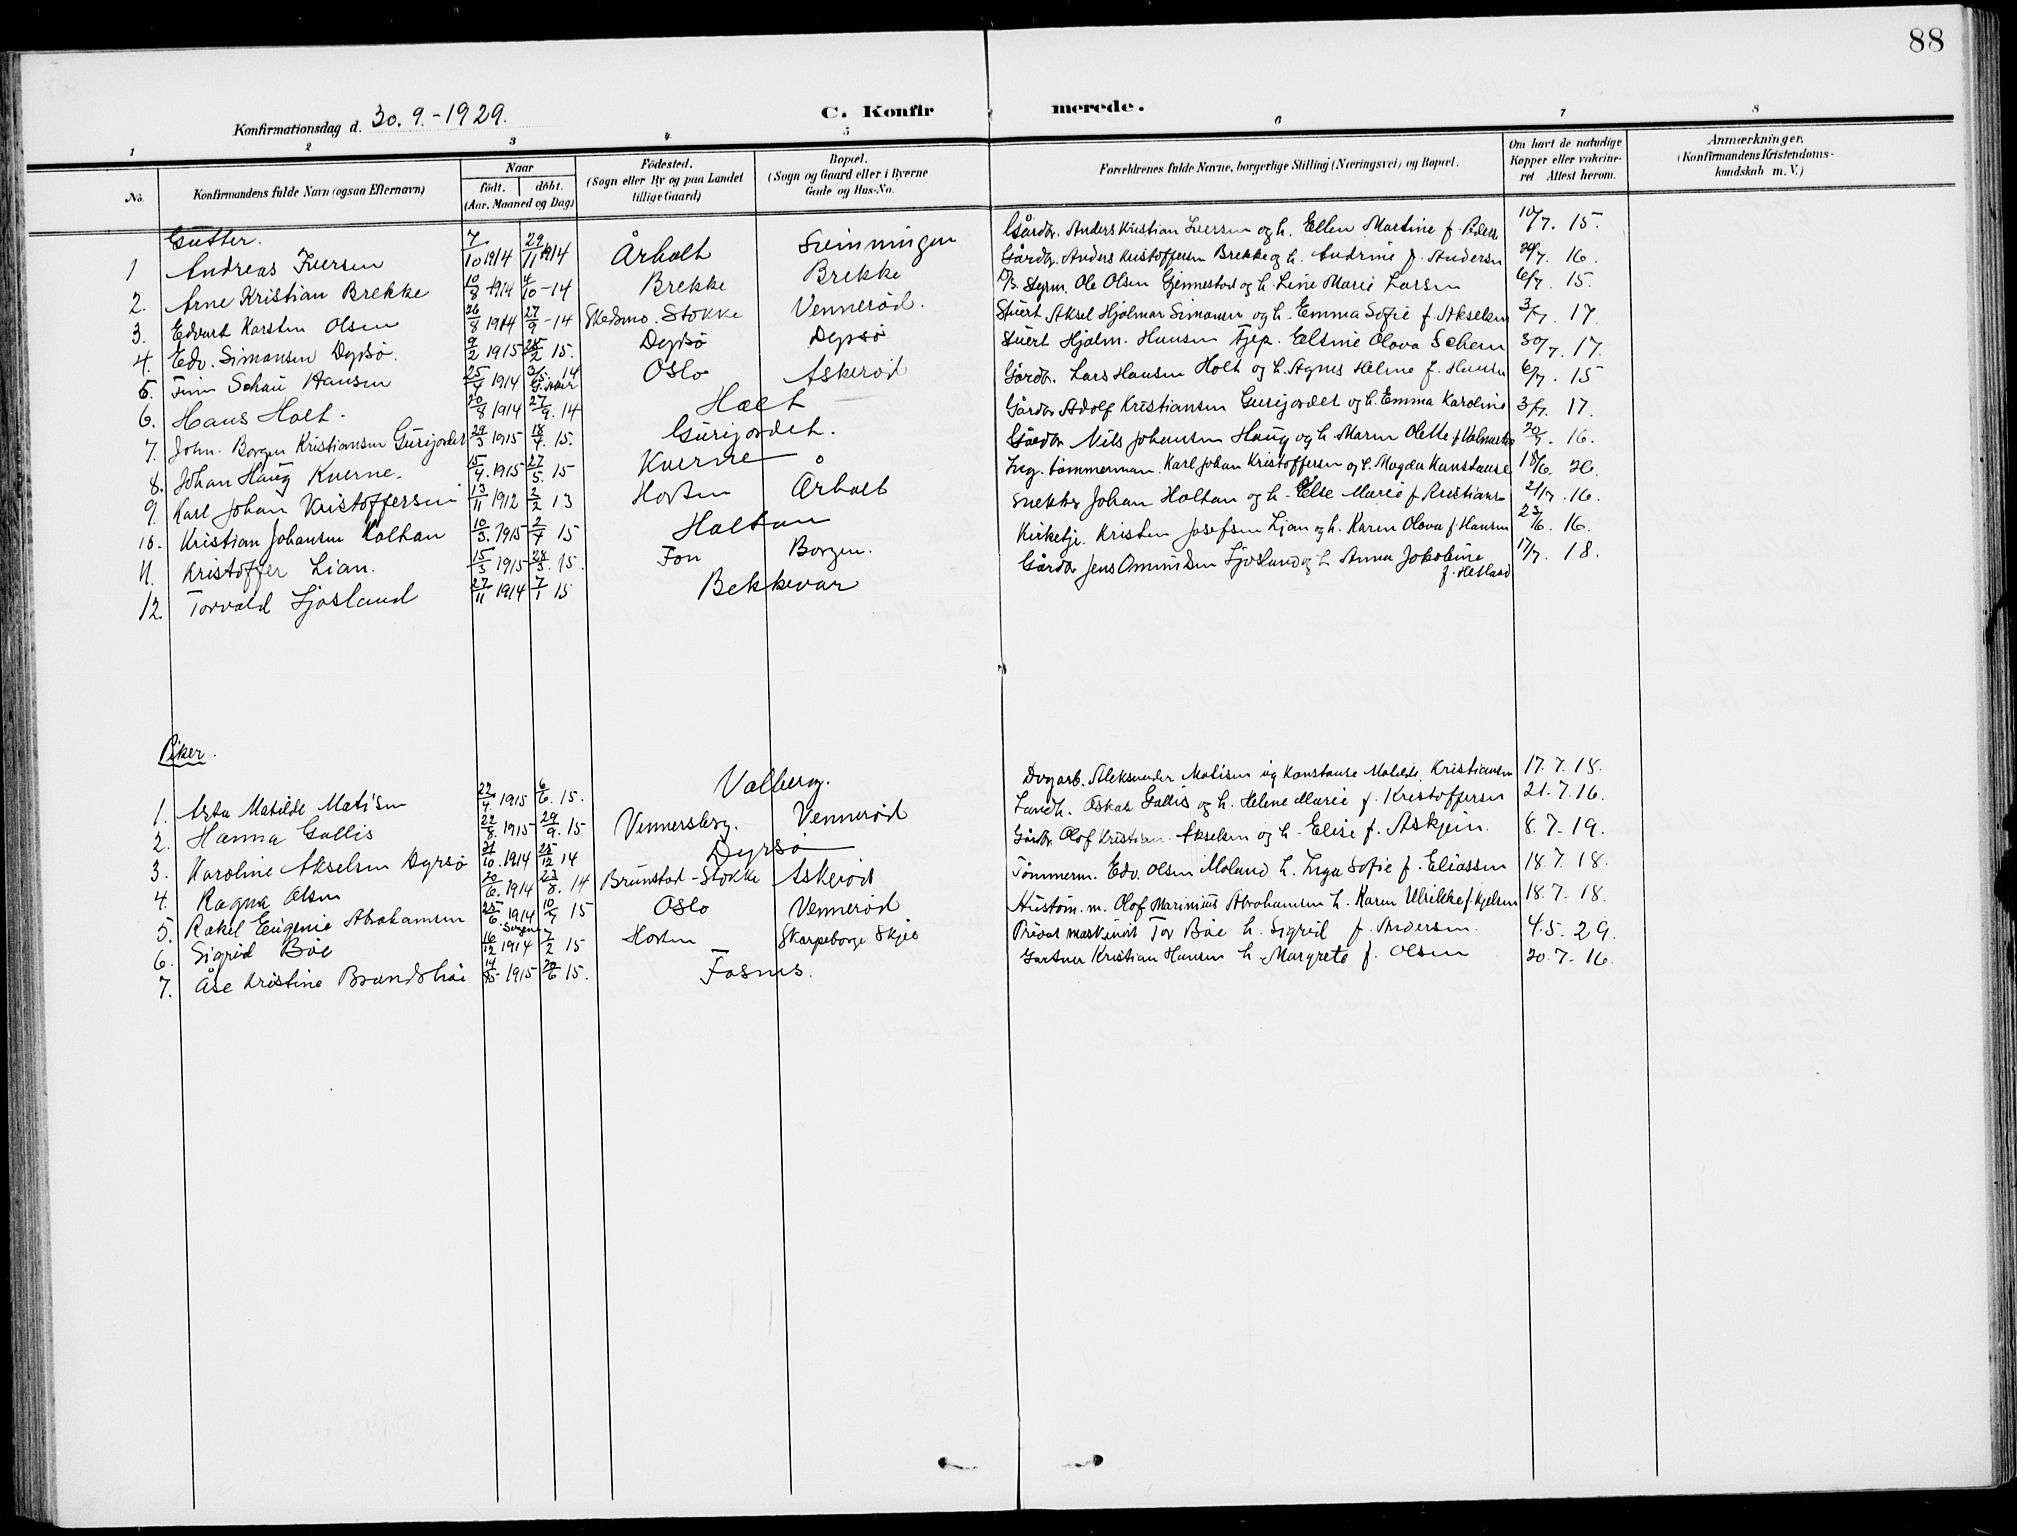 88
Konfirmationsdag d. 30. 9. - 1929.
C. Konfirmerede.
1 2 3 4 5 6 7 8
No.
Konfirmandens fulde Navn (ogsaa Efternavn)
Naar
födt. döbt.
(Aar, Maaned og Dag)
Födested.
(Sogn eller By og paa Landet
tillige Gaard)
Bopæl.
(Sogn og Gaard eller i Byerne
Gade og Hus-No.
Forældrenes fulde Navne, borgerlige Stilling (Næringsvei) og Bopæl.
Om havt de naturlige
Kopper eller vakcine-
ret Attest herom.
Anmærkninger.
(Konfirmandens Kristendoms-
kundskab m. V.)
Gutter.
1 Andreas Iversen 7/10 1914 29/11 1914 Århalt Sviningen Gårdbr. Anders Kristian Iversen og h. Ellen Martine f. 10/7. 15.
2. Arne Kristian Brekke 10/8 1914 4/10 - 14 Brekke Brekke Gårdbr. Anders Kristoffersen Brekke og h. Andrine f. Andersen 20/7. 16.
3. Edvart Karsten Olsen 26/8 1914 27/9 - 14 Skedsmo. Stokke Vennerød. Styrm. Ole Olsen Gjennestad og h. Line Marie Larsen 6/7. 15.
4. Edv. Simonsen Dyrsø. 9/2 1915 28/2 15. Dyrsø Dyrsø Stuert Aksel Hjalmar Simonsen og h. Emma Sofie f. Akselsen 3/7. 17.
5. Finn Schau Hansen 25/4 1914 3/5. 14 Oslo Askerød Stuert Hjalm. Hansen Elsine Olava Schem 30/7. 17.
6. Hans Holt. 20/8 1914 27/9. 14 Holt Gårdbr. Lars Hansen Holt og h. Agnes Helene f. Hansen 6/7. 15
7. John. Borgen Kristiansen Gurijordet 29/3 1915 18/4. 15. Gurijordet. Gårdbr. Adolf Kristiansen Gurijordet og h. Emma Karoline 3/7. 17.
8. Johan Haug Kverne. 15/4. 1915 27/5 15 Kverne Gårdbr. Nils Johansen Haug og h. Maren Olette f. 20/7. 16.
9. Karl Johan Kristoffersen 13/11 1912 2/2 13 Horten Århalt tømmerman. Karl Johan Kristoffersen og h. Magda Kanstanse 18/6. 26.
10. Kristian Johansen Holtan 10/3. 1915 2/4 15 Holtan Snekker Johan Holtan og h. Else Marie f. Kristians 21/7. 16.
11. Kristoffer Lian. 15/3 1915 28/3. 15. Fon Borgen. Kirketj. Kristen Josefsen Lian og h. Karen Olava f. Hansen 23/6. 16.
12. Torvald Ljosland 27/11 1914 7/1 15 Bekkevar Gårdbr Jens Omundsen Ljosland og h Anna Jakobine
f. Hetland 17/7. 18.
Piker.
1. Asta Matilde Matisen 22/4. 1915 6/6. 15. Valberg. Aleksander Matisen og Kanstanse Matilde Kristiansen 17. 7. 18.
2. Hanna Gallis 22/8. 1915 29/9. 15 Vennersberg. Vennerød Landh. Oskar Gallis og h. Helene Marie f. Kristoffersen 21. 7. 16.
3. Karoline Akselsen Dyrsø 21/10. 1914 25/12 14 Dyrsø Gårdbr. Olof Kristian Akselsen og h. Elise f. Askjem. 8. 7. 19.
4. Ragna Olsen 20/6. 1914 23/8. 14 Brunstad - Stokke Askerød Tømmerm. Edv. Olsen Moland h. Inga Sofie f. Eliassen 18. 7. 18.
5. Rakel Eugenie Abrahamsen 25/6. 1914 10/4 15 Oslo Vennerød Hustøm. m. Olof Marinius Abrahamsen h. Karen Ulrikke f. 18. 7. 18.
6. Sigrid Bøe 16/12 1914 7/2 15 Horten Skarpeborge Skjee Tor Bøe h. Sigrid f. Andersen. 4. 5. 29.
7. Åse Kristine 14/5 - 1915 20/6 15. Fosnes. Gartner Kristian Hansen h Margrete f. Olsen 20. 7 - 16.